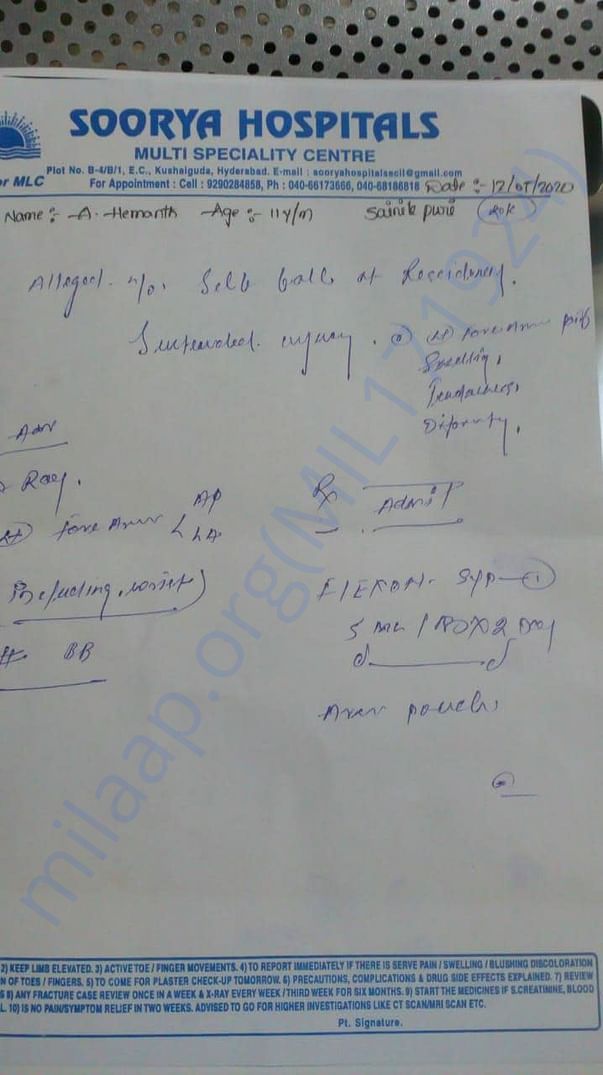 SOORYA HOSPITALS
MULTI SPECIALITY CENTRE
or MLC
Plot No. B-4/B/1, E.C., Kushaiguda, Hyderabad. E-mail : sooryahospitalsecil@gmail.com
For Appointment : Call : 9290284858, Ph : 040-66173666, 040-68186818
Date :- 12/05/2020
Name :- A. Hemanth Age :- 11y/m Sainik puri
Alleged h/o. Self fall at
injury.
Swelling,
Adv
X Ray.
Fore Arm
AP
LA
Including wrist)
# BB
Rx Admit
5 ml / BD X 2 Day
Arm pouch.
milaap.org(MIL171924)
2) KEEP LIMB ELEVATED. 3) ACTIVE TOE / FINGER MOVEMENTS. 4) TO REPORT IMMEDIATELY IF THERE IS SERVE PAIN / SWELLING / BLUSHING DISCOLORATION
N OF TOES / FINGERS. 5) TO COME FOR PLASTER CHECK-UP TOMORROW. 6) PRECAUTIONS, COMPLICATIONS & DRUG SIDE EFFECTS EXPLAINED. 7) REVIEW
8) ANY FRACTURE CASE REVIEW ONCE IN A WEEK & X-RAY EVERY WEEK / THIRD WEEK FOR SIX MONTHS. 9) START THE MEDICINES IF S.CREATININE, BLOOD
L. 10) IS NO PAIN/SYMPTOM RELIEF IN TWO WEEKS. ADVISED TO GO FOR HIGHER INVESTIGATIONS LIKE CT SCAN/MRI SCAN ETC.
Pt. Signature.